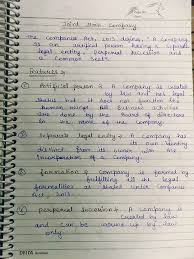 Joint Stock Company
The Companies Act, 2013 defines, "A company
as an artificial person having a separate
legal entity, perpetual succession and
a Common Seal."
Features :-
① Artificial person :- A Company is created
by law and not legal
but it does not function like
human beings. All
are done by the Board of directors
in the name of the company.
② Separate legal entity :- A Company has
its own entity
distinct from its owners with
incorporation of a Company.
③ formation :- A Company is formed
by fulfilling all the legal
formalities as stated under Companies
Act, 2013.
④ perpetual succession :- A Company is
created by law
and can be wound up by law
only.